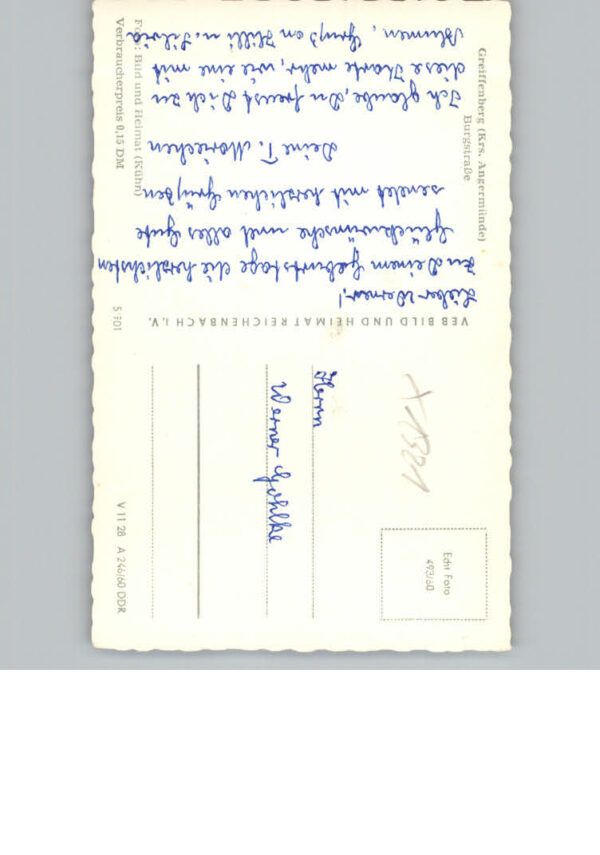 Greiffenberg (Krs. Angermünde)
Burgstraße
Lieber Werner!
Zu Deinem Geburtstage die herzlichsten
Glückwünsche und alles Gute
sendet mit herzlichen Grüßen
Deine T. Mariechen
Ich glaube, Du freust Dich zu
diese Karte mehr, wie eine mit
Blumen, Gruß an Hilli u. Silvia
Foto: Bild und Heimat (Kühn)
Verbraucherpreis 0,15 DM
VEB BILD UND HEIMAT REICHENBACH I. V.
5 701
X 1321
Echt Foto
493/60
Herrn
Werner Gohlke
V 11 28 A 246/60 DDR